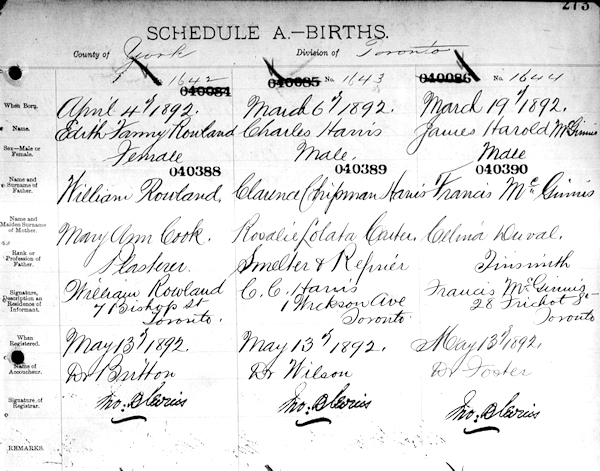 273
SCHEDULE A.—BIRTHS.
County of York Division of Toronto
1642 No. 1643 No. 1644
040084 040085 040086
When Born. April 4th 1892. March 6th 1892. March 19th 1892.
Name. Edith Fanny Rowland Charles Harris James Harold McGinnis
Sex—Male or Female. Female Male. Male
040388 040389 040390
Name and Surname of Father. William Rowland. Clarence Chipman Harris Francis McGinnis
Name and Maiden Surname of Mother. Mary Ann Cook. Rosalie Carter. Duval.
Rank or Profession of Father. Plasterer. Smelter & Refiner Tinsmith
Signature, Description and Residence of Informant. William Rowland C. C. Harris Francis McGinnis
71 Bishop St 1 Wickson Ave 28 St
Toronto. Toronto. Toronto
When Registered. May 13th 1892. May 13th 1892. May 13th 1892.
Name of Accoucheur. Dr Britton Dr Wilson Dr Foster
Signature of Registrar. Jno: Jno: Jno:
REMARKS.